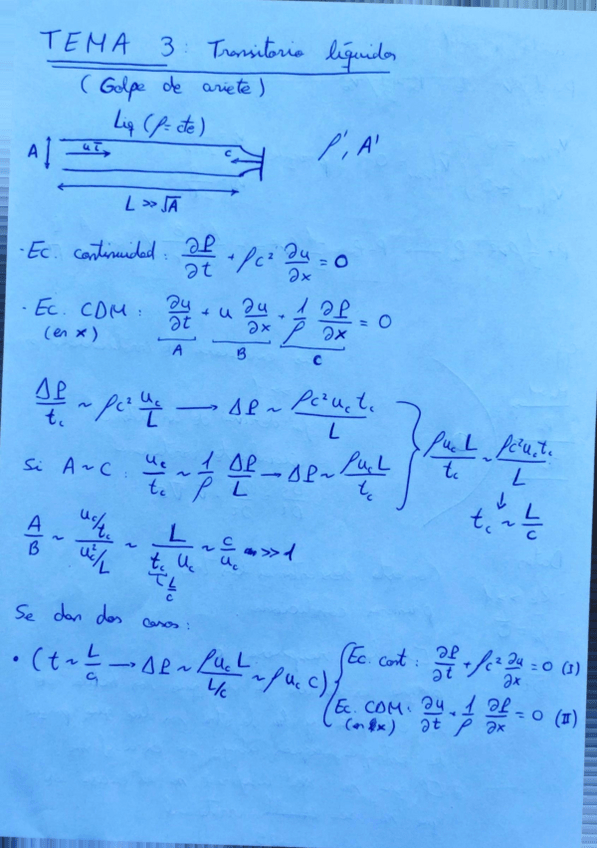 TEMA 3: Transitorio líquidos
(Golpe de ariete)
Liq (ρ=cte)
A u⃗ c ρ', A'
L >> √A
· Ec. continuidad: ∂P/∂t + ρc² ∂u/∂x = 0
· Ec. CDM: ∂u/∂t + u ∂u/∂x + 1/ρ ∂P/∂x = 0
(en x) A B C
ΔP/t_c ~ ρc² u_c/L → ΔP ~ ρc² u_c t_c/L
Si A ~ C: u_c/t_c ~ 1/ρ ΔP/L → ΔP ~ ρ u_c L/t_c
ρ u_c L/t_c ~ ρc² u_c t_c/L
↓
t_c ~ L/c
A/B ~ (u_c/t_c)/(u_c²/L) ~ L/(t_c u_c) ~ c/u_c >> 1
L/c
Se dan dos casos:
· (t ~ L/c → ΔP ~ ρ u_c L/(L/c) ~ ρ u_c c)
Ec. cont: ∂P/∂t + ρc² ∂u/∂x = 0 (I)
Ec. CDM: ∂u/∂t + 1/ρ ∂P/∂x = 0 (II)
(en x)